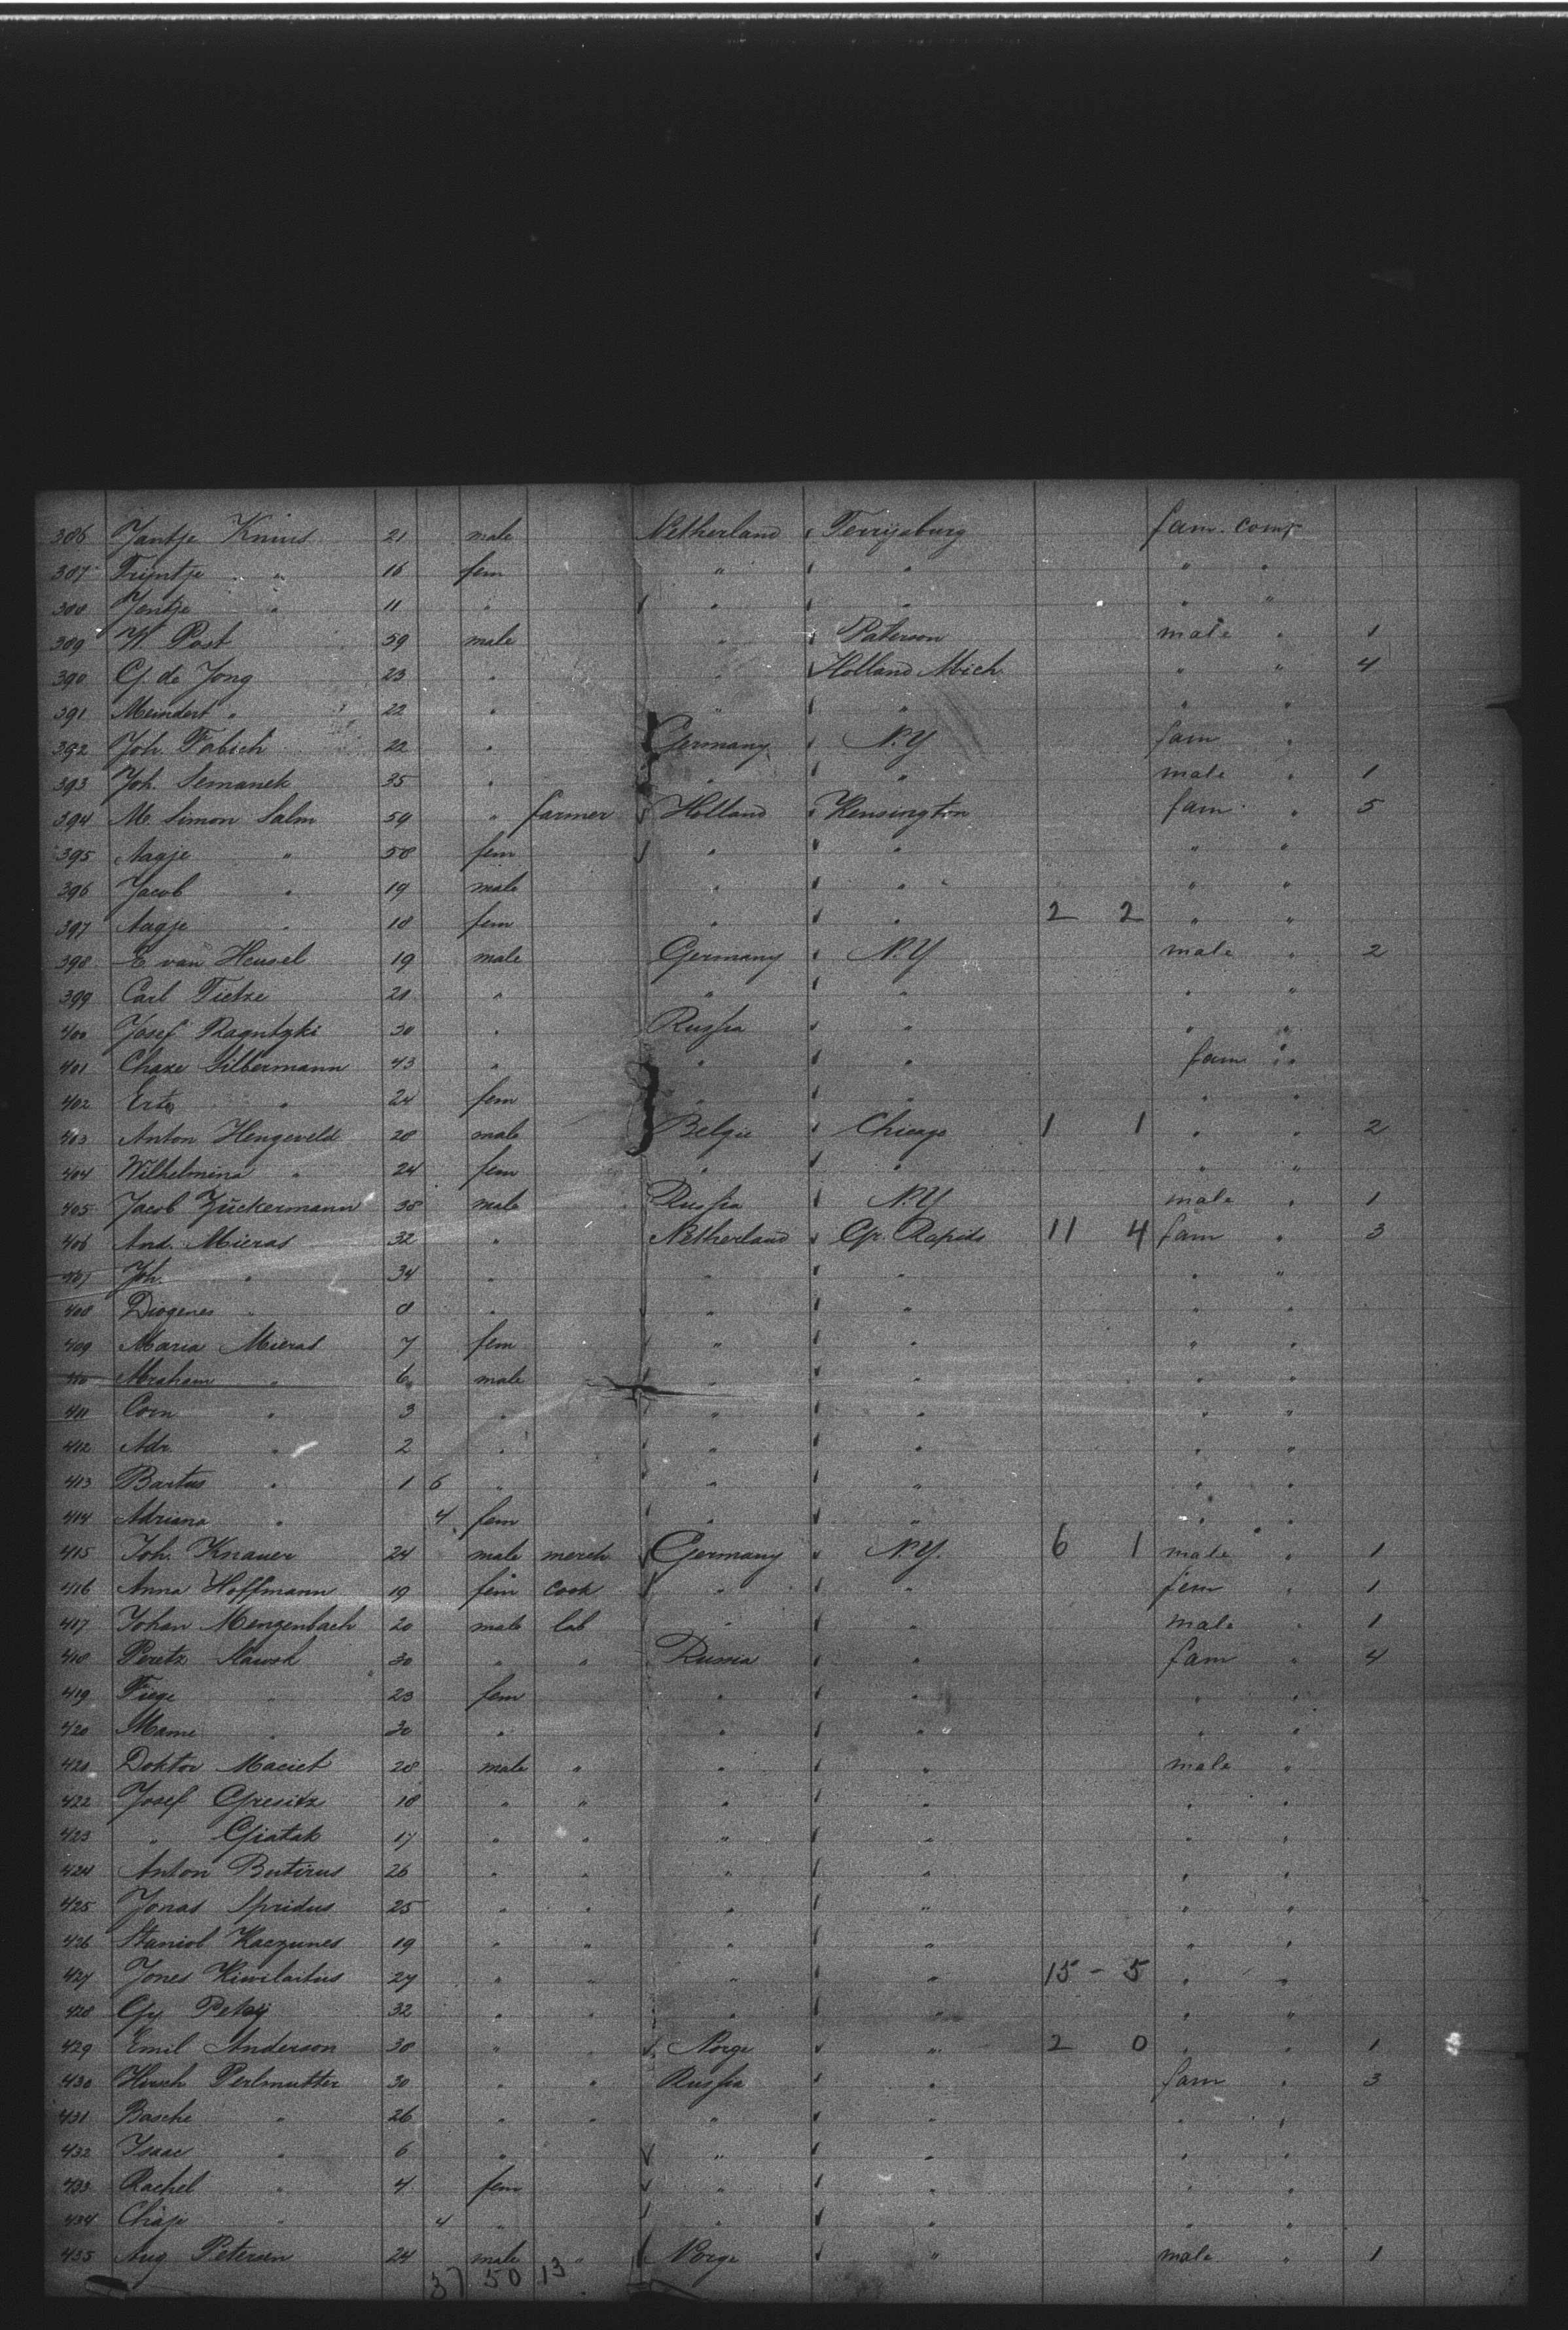 386 Jantje Knius 21 male Netherland Ferrysburg fam. comp
387 Trijntje " 16 fem " " " "
388 Jentje " 11 " " " " "
389 W. Post 59 male " Paterson male " 1
390 G. de Jong 23 " " Holland Mich " " 4
391 Meindert " 22 " " " " "
392 Joh. Fabich 22 " Germany N.Y fam "
393 Joh. Semanek 35 " " " male " 1
394 M. Simon Salm 54 " farmer Holland Kensington fam " 5
395 Aagje " 58 fem " " " "
396 Jacob " 19 male " " " "
397 Aagje " 18 fem " " 2 2 " "
398 E van Heusel 19 male Germany N.Y male " 2
399 Carl Tietze 21 " " " " "
400 Josef 30 " Russia " " "
401 Chaze Silbermann 43 " " " fam "
402 Ester " 24 fem " " " "
403 Anton Hengeveld 28 male Belgie Chicago 1 1 " " 2
404 Wilhelmina " 24 fem " " " "
405 Jacob Zuckermann 38 male Russia N.Y male " 1
406 And. Mieras 32 " Netherland Gr. Rapids 11 4 fam " 3
407 Joh. " 34 " " " " "
408 Diogenes " 8 " " " " "
409 Maria Mieras 7 fem " " " "
410 Abraham " 6 male " " " "
411 Corn " 3 " " " " "
412 Adr. " 2 " " " " "
413 Bartus " 1 6 " " " " "
414 Adriana " 4 fem " " " "
415 Joh. Knauer 24 male merch Germany N.Y. 6 1 male " 1
416 Anna Hoffmann 19 fem cook " " fem " 1
417 Johan Mengenbach 20 male lab " " male " 1
418 Peretz 30 " " Russia " fam " 4
419 Fiege " 23 fem " " " "
420 Mame " 30 " " " " "
421 Doktor Maciet 28 male " " " male "
422 Josef Gresitz 18 " " " " " "
423 " Giatak 17 " " " " " "
424 Anton Butirus 26 " " " " " "
425 Jonas Spridus 25 " " " " " "
426 Staniol Kaczunes 19 " " " " " "
427 Jones Kiwilaitus 27 " " " " 15 - 5 " "
428 Gy 32 " " " " " "
429 Emil Anderson 30 " " Norge " 2 0 " " 1
430 Hirsch Perlmutter 30 " " Russia " fam " 3
431 Basche " 26 " " " " " "
432 Isaac " 6 " " " " "
433 Rachel " 4 fem " " " "
434 Chaje " 4 " " " " "
435 Aug Petersen 24 male " Norge " male " 1
37 50 13